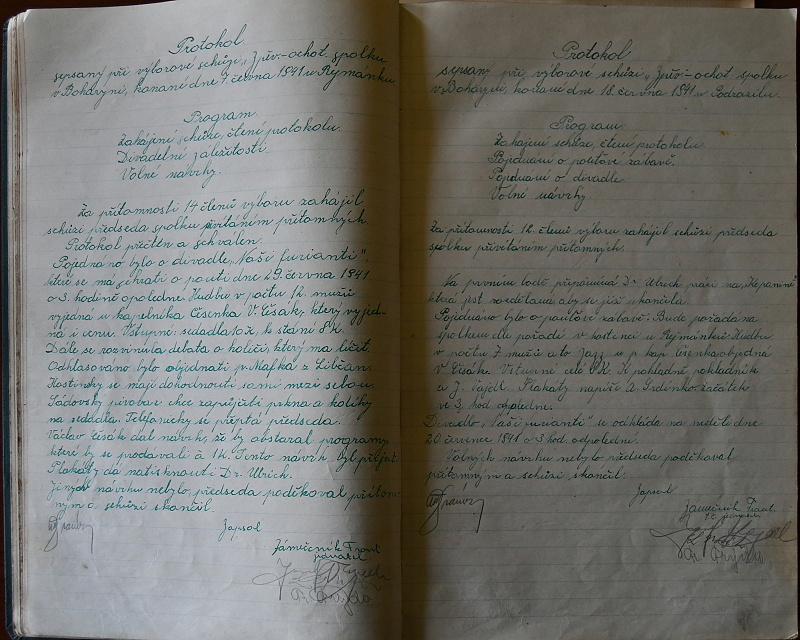 Protokol
sepsaný při výborové schůzi „Zpěv.-ochot. spolku
v Boharyni, konané dne 7. června 1941 u Rejmánků.
Program.
Zahájení schůze, čtení protokolu.
Divadelní záležitosti.
Volné návrhy.
Za přítomnosti 14 členů výboru zahájil
schůzi předseda spolku přivítáním přítomných.
Protokol přečten a schválen.
Pojednáno bylo o divadle „Naši furianti",
které se má sehráti o pouti dne 29. června 1941
o 3. hodině odpoledne. Hudbu v počtu 12. mužů
vyjedná u kapelníka Čísenka V. Císak, který vyjed-
ná i cenu. Vstupné: sedadla 10 K, k stání 8 K.
Dále se rozvinula debata o holiči, který má líčit.
Odhlasováno bylo objednati p. Kafka z Libčan.
Hostinský se mají dohodnouti sami mezi sebou.
Sádovský pivovar chce zapůjčiti prkna a kolíky
na sedadla. Telefonicky se přeptá předseda.
Václav Císak dal návrh, že by obstaral programy,
které by se prodávali á 1 K. Tento návrh byl přijat.
Plakáty dá natisknouti Dr. Ulrich.
Jiných návrhů nebylo, předseda poděkoval přítom-
ným a schůzi skončil.
Zapsal
Zámečník Frant.
jednatel
Protokol
sepsaný při výborové schůzi „Zpěv.-ochot. spolku
v Boharyni, konané dne 18. června 1941 u Podrazilů.
Program.
Zahájení schůze, čtení protokolu.
Pojednání o pouťové zábavě.
Pojednání o divadle.
Volné návrhy.
Za přítomnosti 12. členů výboru zahájil schůzi předseda
spolku přivítáním přítomných.
Na prvním bodě připomíná Dr. Ulrich práci na „Kepamině"
která jest rozdělaná aby se již skončila.
Pojednáno bylo o pouťové zábavě: Bude pořádána
spolkem dle pořadí v hostinci u Rejmánků. Hudbu
v počtu 7. mužů a to Jazz u p. kap. Čísenka objedná
V. Císak. Vstupné celé 8 K. K pokladně pokladník
a J. Vajdl. Plakáty napíše A. Hrdinko. Začátek
ve 3. hod. odpoledne.
Divadlo „Naši furianti" se odkládá na neděli dne
20 července 1941 o 3 hod. odpolední.
Volných návrhů nebylo předseda poděkoval
přítomným a schůzi skončil.
Zapsal
Zámečník Frant.
t. č. jednatel